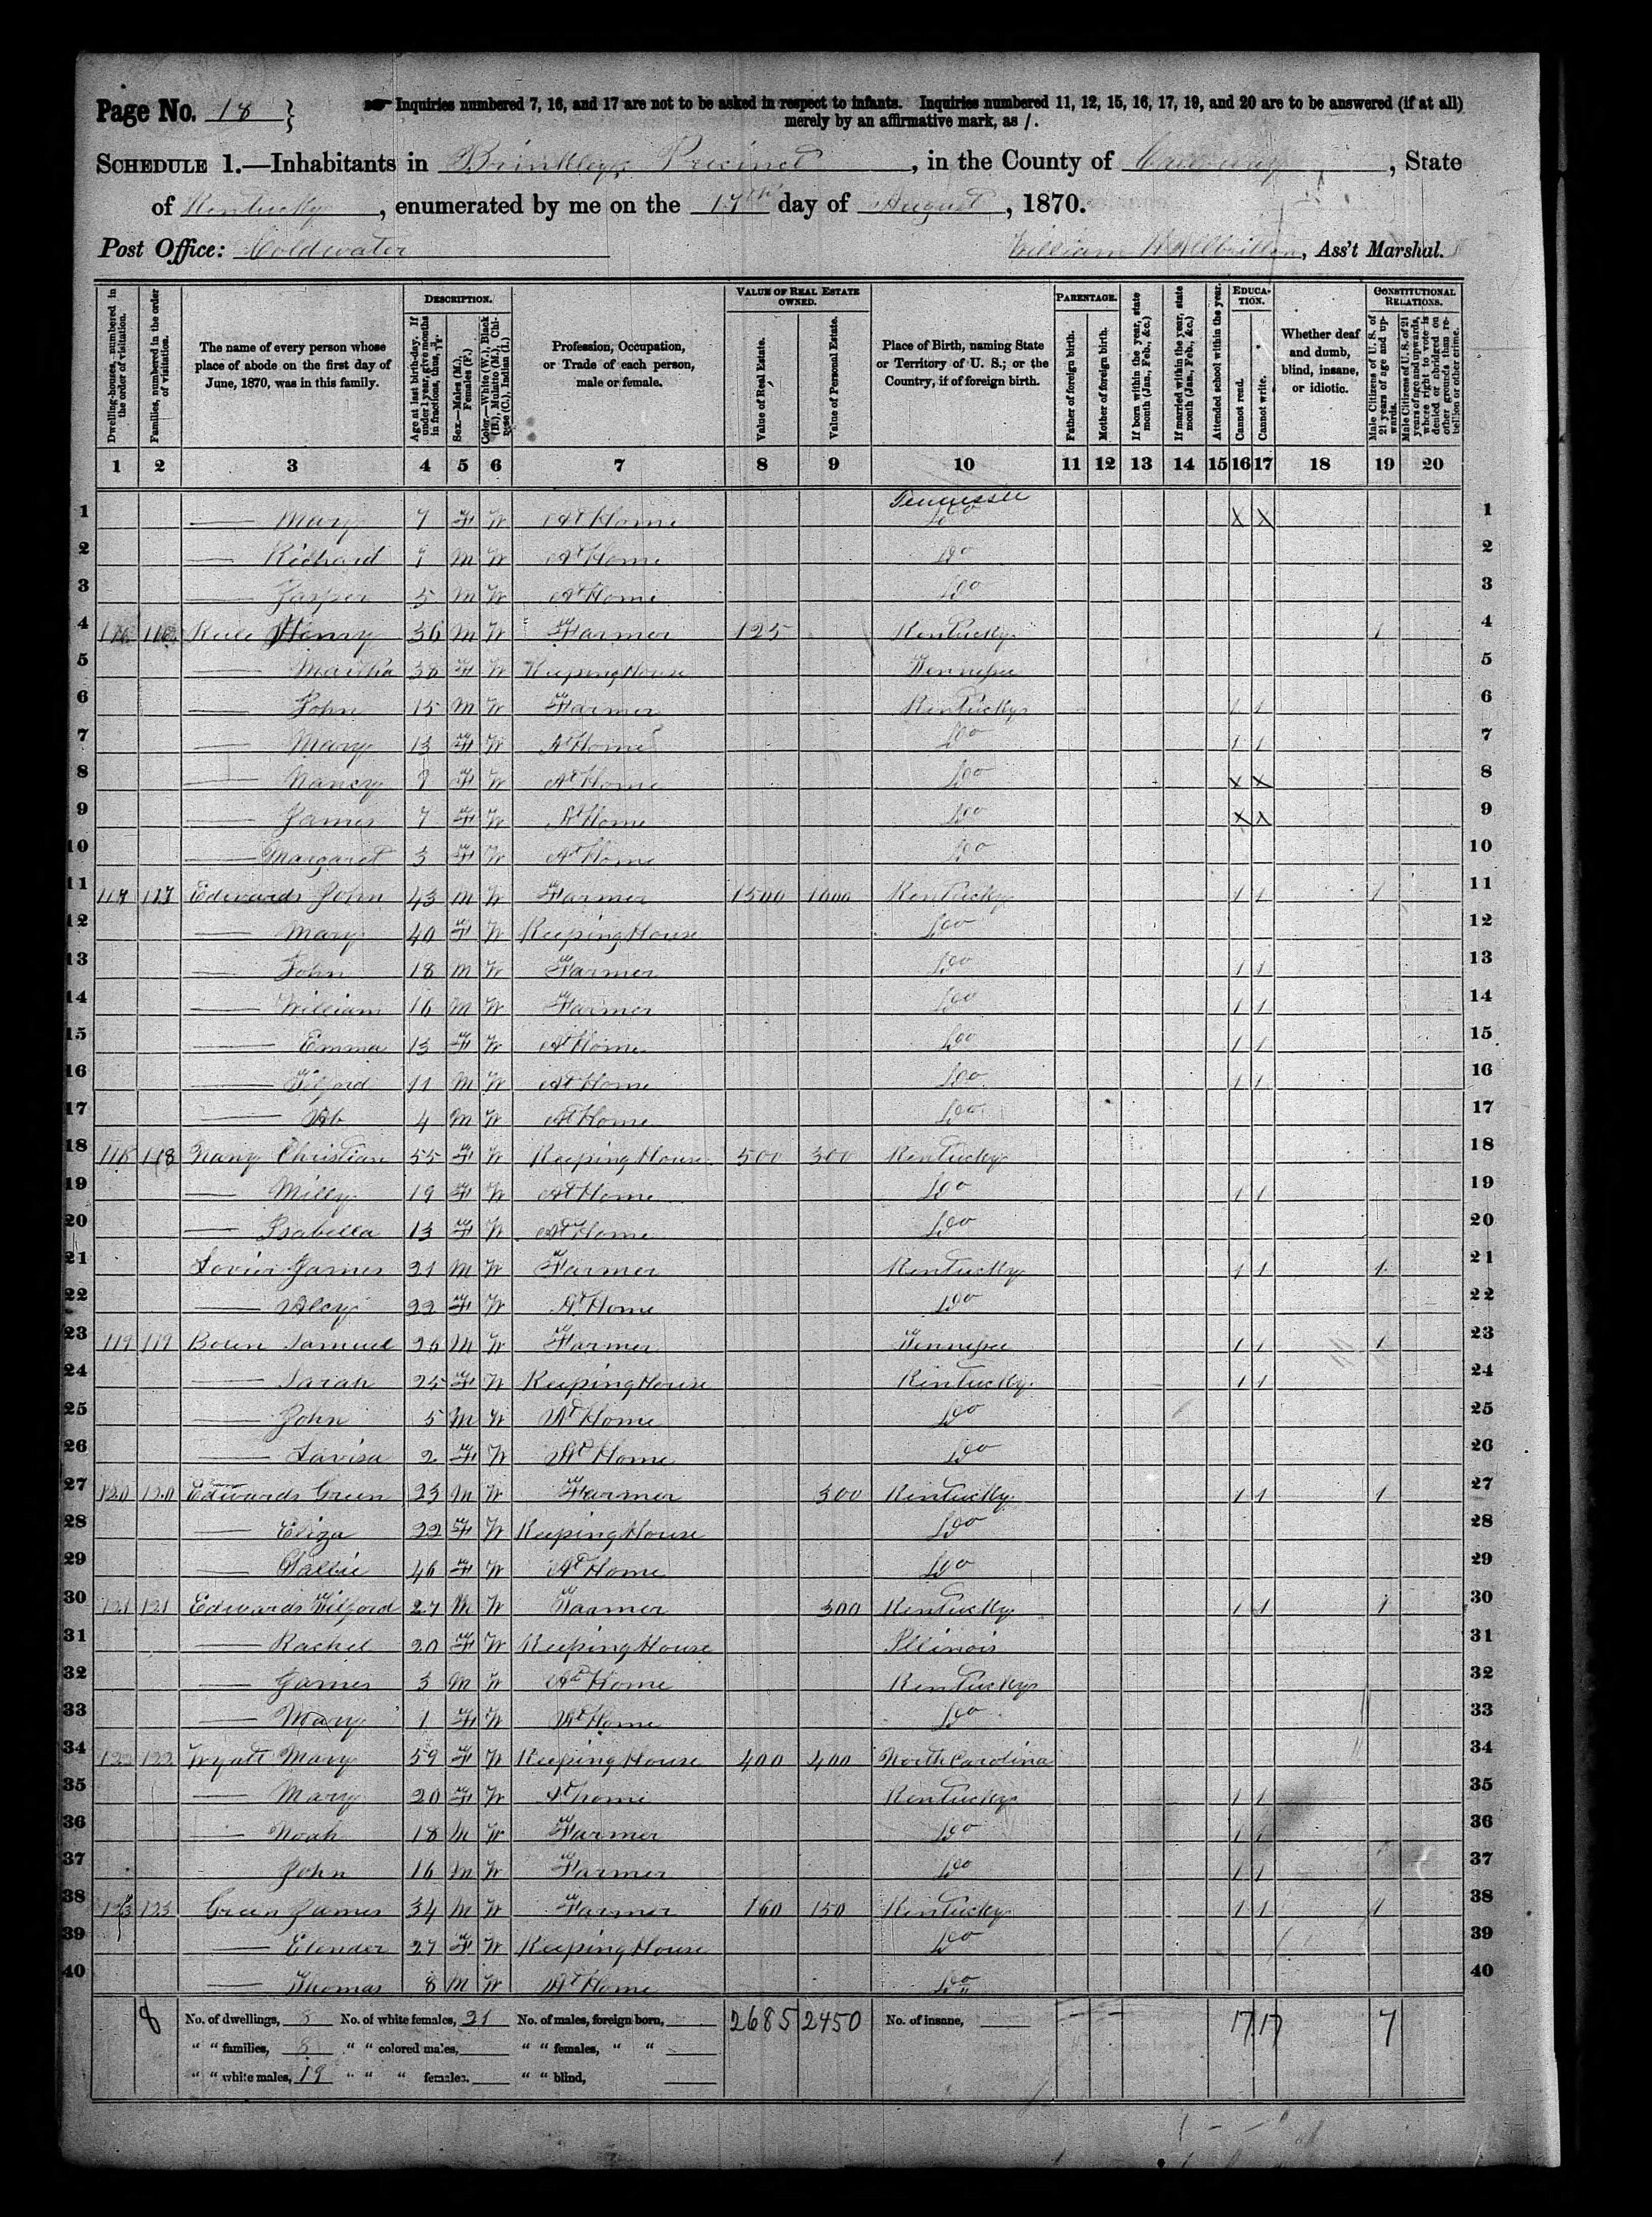 Page No. 18 }
Inquiries numbered 7, 16, and 17 are not to be asked in respect to infants. Inquiries numbered 11, 12, 15, 16, 17, 19, and 20 are to be answered (if at all)
merely by an affirmative mark, as /.
SCHEDULE 1.—Inhabitants in Brinkleys Precinct, in the County of Calloway, State
of Kentucky, enumerated by me on the 17th day of August, 1870.
Post Office: Coldwater William , Ass't Marshal.
Dwelling-houses, numbered in the order of visitation.
Families, numbered in the order of visitation.
The name of every person whose place of abode on the first day of June, 1870, was in this family.
DESCRIPTION.
Age at last birth-day. If under 1 year, give months in fractions, thus, 3/12.
Sex.—Males (M.), Females (F.)
Color.—White (W.), Black (B.), Mulatto (M.), Chinese (C.), Indian (I.)
Profession, Occupation, or Trade of each person, male or female.
VALUE OF REAL ESTATE OWNED.
Value of Real Estate.
Value of Personal Estate.
Place of Birth, naming State or Territory of U. S.; or the Country, if of foreign birth.
PARENTAGE.
Father of foreign birth.
Mother of foreign birth.
If born within the year, state month (Jan., Feb., &c.)
If married within the year, state month (Jan., Feb., &c.)
Attended school within the year.
EDUCATION.
Cannot read.
Cannot write.
Whether deaf and dumb, blind, insane, or idiotic.
CONSTITUTIONAL RELATIONS.
Male Citizens of U. S. of 21 years of age and upwards.
Male Citizens of U. S. of 21 years of age and upwards, where right to vote is denied or abridged on other grounds than rebellion or other crime.
1 2 3 4 5 6 7 8 9 10 11 12 13 14 15 16 17 18 19 20
Tennessee
1 — Mary 7 F W At Home Do X X 1
2 — Richard 7 M W At Home Do 2
3 — Jasper 5 M W At Home Do 3
4 116 116 Henry 36 M W Farmer 125 Kentucky 1 4
5 — Martha 38 F W Keeping House Tennessee 5
6 — John 15 M W Farmer Kentucky 1 1 6
7 — Mary 13 F W At Home Do 1 1 7
8 — Nancy F W At Home Do X X 8
9 — James 7 F W At Home Do X X 9
10 — Margaret 3 F W At Home Do 10
11 117 117 Edwards John 43 M W Farmer 1500 1000 Kentucky 1 1 1 11
12 — Mary 40 F W Keeping House Do 12
13 — John 18 M W Farmer Do 1 1 13
14 — William 16 M W Farmer Do 1 1 14
15 — Emma 13 F W At Home Do 1 1 15
16 — Tilford 11 M W At Home Do 1 1 16
17 — Ab 4 M W At Home Do 17
18 118 118 Nany Christian 55 F W Keeping House 500 300 Kentucky 18
19 — Milly 19 F W At Home Do 1 1 19
20 — Isabella 13 F W At Home Do 20
21 James 21 M W Farmer Kentucky 1 1 1 21
22 — Alcy 22 F W At Home Do 22
23 119 119 Bouen Samuel 26 M W Farmer Tennessee 1 1 1 23
24 — Sarah 25 F W Keeping House Kentucky 1 1 24
25 — John 5 M W At Home Do 25
26 — Lavisa 2 F W At Home Do 26
27 120 120 Edwards Green 23 M W Farmer 300 Kentucky 1 1 1 27
28 — Eliza 22 F W Keeping House Do 28
29 — Sallie 46 F W At Home Do 29
30 121 121 Edwards Tilford 27 M W Farmer 300 Kentucky 1 1 1 30
31 — Rachel 20 F W Keeping House Illinois 31
32 — James 3 M W At Home Kentucky 32
33 — Mary 1 F W At Home Do 33
34 122 122 Wyatt Mary 59 F W Keeping House 400 400 North Carolina 34
35 — Mary 20 F W At home Kentucky 1 1 35
36 — Noah 18 M W Farmer Do 1 1 36
37 — John 16 M W Farmer Do 1 1 37
38 123 123 Green James 34 M W Farmer 160 150 Kentucky 1 1 1 38
39 — Elender 27 F W Keeping House Do 39
40 — Thomas 8 M W At Home Do 40
8 No. of dwellings, 8 No. of white females, 21 No. of males, foreign born, 2685 2450 No. of insane, 17 17 7
" " families, 8 " " colored males, " " females, " "
" " white males, 19 " " " females, " " blind,